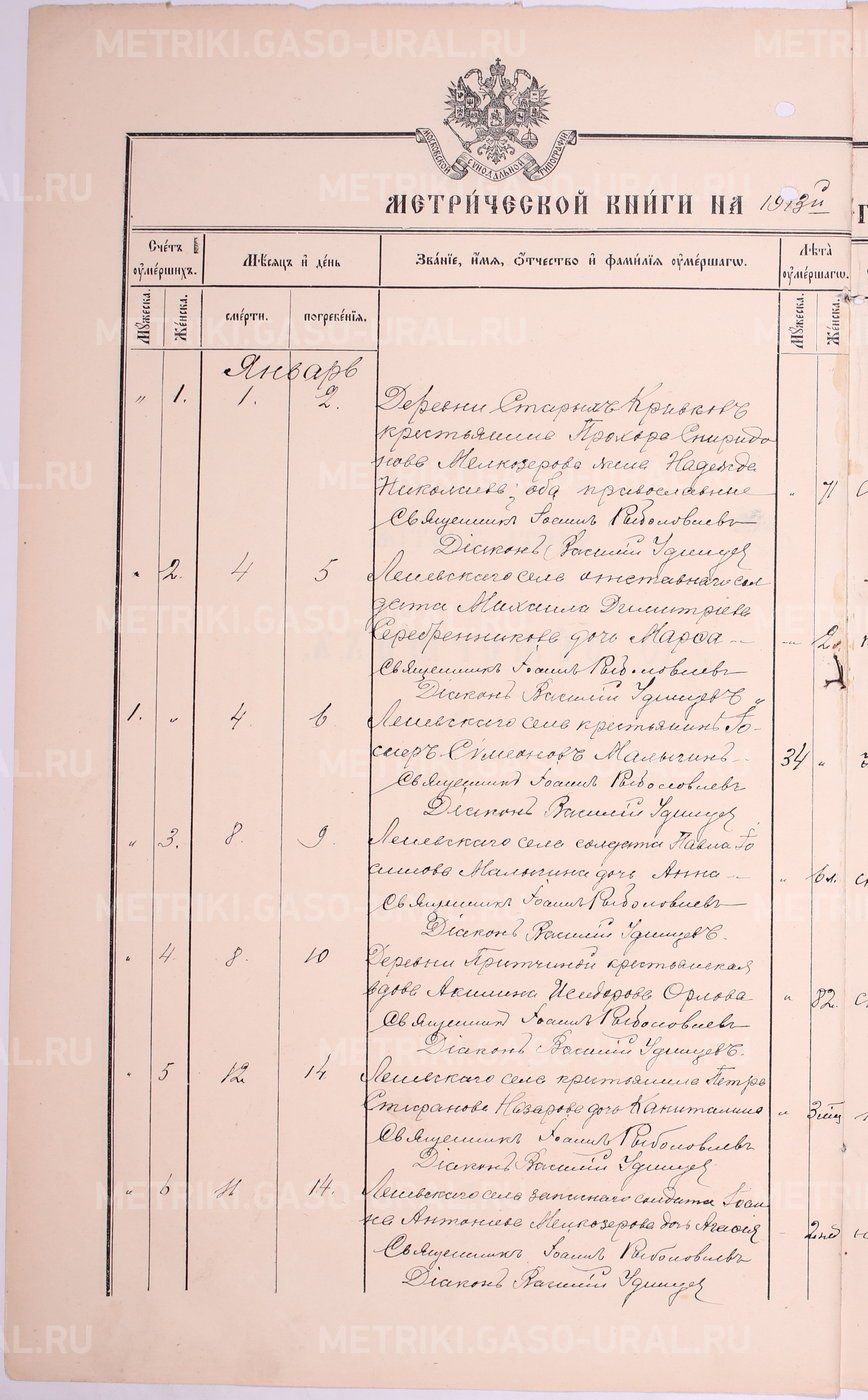 METRIKI.GASO-URAL.RU
МОСКОВСКОЙ СѴНОДАЛЬНОЙ ТИПОГРАФІИ
МЕТРИ́ЧЕСКОЙ КНИ́ГИ НА 1913 г.
Сче́тъ ᲂу҆ме́ршихъ.
Мѣ́сяцъ и҆ де́нь
Зва́нїе, и҆́мѧ, ѻ҆́тчество и҆ фамилїѧ ᲂу҆ме́ршагѡ.
Лѣта̀ ᲂу҆ме́ршагѡ.
Мꙋ́жеска. Же́нска. сме́рти. погребе́нїѧ. Мꙋ́жеска. Же́нска.
Январь
" 1. 1. 2. Деревни Старыхъ Кривковъ
крестьянина Прохора Спиридо
нова Мелкозерова жена Надежда
Николаева; оба православные " 71
Священникъ Іоаннъ Рыболовлевъ
Діаконъ Василій Удинцев
" 2. 4 5 Леневскаго села отставнаго сол
дата Михаила Димитріева
Серебренникова дочь Марѳа
Священникъ Іоаннъ Рыболовлевъ
Діаконъ Василій Удинцевъ
1. " 4 6 Леневскаго села крестьянинъ
Сѵмеоновъ Малыгинъ 34 "
Священникъ Іоаннъ Рыболовлевъ
Діаконъ Василій Удинцев
" 3. 8. 9. Леневскаго села солдата Павла Іо
Малыгина дочь Анна " 6 л.
Священникъ Іоаннъ Рыболовлевъ
Діаконъ Василій Удинцевъ.
" 4 8. 10 Деревни Притчиной крестьянская
вдова Акилина Исидорова Орлова " 82.
Священникъ Іоаннъ Рыболовлевъ
Діаконъ Василій Удинцевъ.
" 5 12 14 Леневскаго села крестьянина Петра
Стефанова Назарова дочь Капиталина " 3 мц
Священникъ Іоаннъ Рыболовлевъ
Діаконъ Василій Удинцев
" 6 14. Леневскаго села запаснаго солдата Іоан
на Антоніева Мелкозерова дочь Агафія 2 нед
Священникъ Іоаннъ Рыболовлевъ
Діаконъ Василій Удинцев